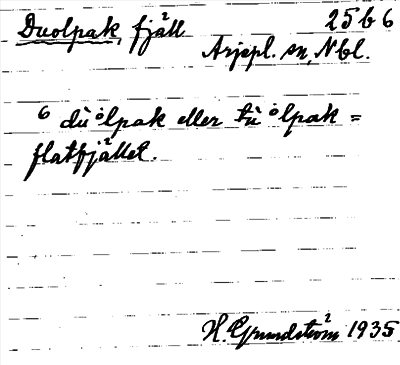 Duolpak, fjäll 25 b 6
Arjepl. sn, Nbl.
6 dùolpak eller tùolpak =
flatfjället.
H. Grundström 1935